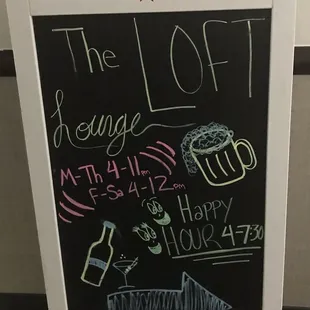 The LOFT
Lounge
M-Th 4-11pm
F-Sa 4-12pm
Happy
HOUR 4-7:30